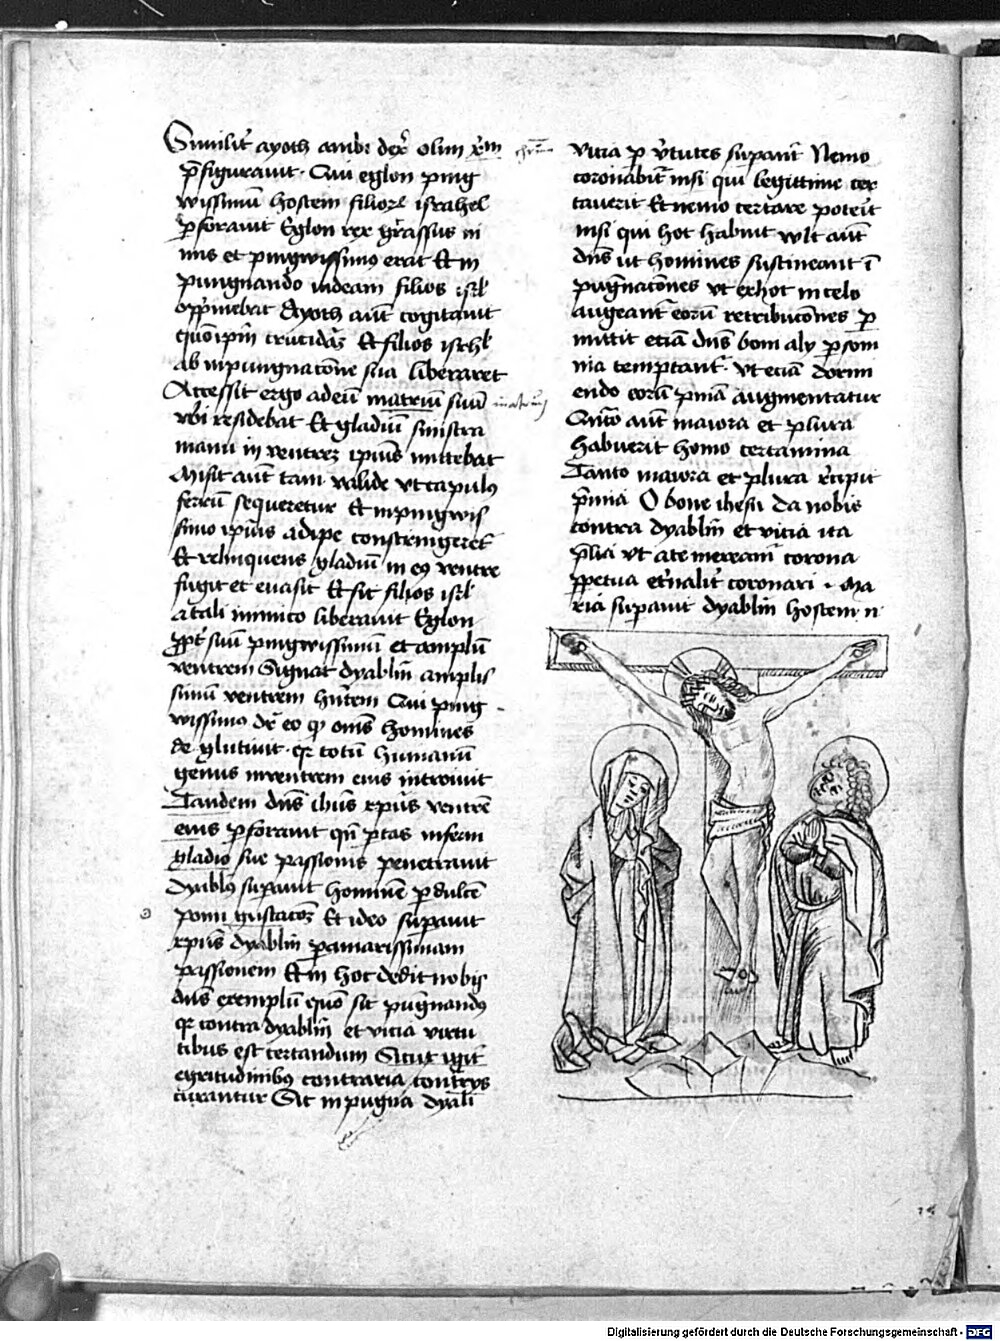 Similit̄ ayoth ambi dex̄ olim xp̄m
p̄figurauit · Qui eglon ping
wissimū hostem filiorꝫ israhel
ꝑforauit Eglon rex grassus ni
mis et pingwissimꝰ erat Et in
pungnando indeam filios isrl̄
opp̄mebat Ayoth aūt cogitauit
quō ip̄m trucidaꝫ Et filios isrl̄
ab inpungnacōne sua liberaret
Accessit ergo ad eū matriū suū
vbi residebat Et gladiū sinistra
manu in ventrem ipiꝰ mittebat
Misit aūt tam valide vt capulꝰ
ferrū sequeretur Et in pingwis
simo ipiꝰ adipe constringeret
Et relinquens gladiū in eꝰ ventre
fugit et euasit Et sic filios isrl̄
a tali inimico liberauit Eglon
ꝓpt̄ suū pingwissimū et amplū
ventrem Signat dyablū amplis
simū ventrem hn̄tem Qui ping
wissimus dr̄ eo qꝫ om̄s homines
de glutiuit · qꝫ totū humanū
genus in ventrem eius introiuit
Tandem dn̄s ih̄us xp̄us ventrē
eius ꝑforauit qn̄ portas inferni
gladio sue passionis penetrauit
Dyablꝰ suꝑauit hominē ꝑ dulcē
pomi gustacōꝫ Et ideo suꝑauit
xp̄us dyablū ꝑ amarissimam
passionem Et in hoc dedit nobis
dn̄s exemplū quō sit pugnandū
qꝫ contra dyablū et vicia virtu
tibus est certandum Sicut igit̄
egritudinibꝰ contraria contrijs
curantur Sic in pugna dyabli
vicia ꝑ v̄tutes suꝑant̄ Nemo
coronabit̄ nisi qui legittime cer
tauerit Et nemo certare poterit
nisi qui hoc habuit wlt aūt
dn̄s ut homines sustineant ī
pugnacōnes vt ex hoc in celo
augeant̄ eorū retribucōnes ꝑ
mittit eciā dn̄s boni aly ꝑ som
nia temptant̄ · vt eciā dormi
endo eorū p̄mia augmentatur
Qn̄to aūt maiora et plura
habuerit homo certamina
Tanto maiora et plura recipit
p̄mia O bone ihesu da nobis
contra dyablū et vicia ita
p̄lia vt a te mereamr̄ corona
ꝑpetua et̄nalit̄ coronari · Ma
ria suꝑauit dyablū hostem n̄
Digitalisierung gefördert durch die Deutsche Forschungsgemeinschaft - DFG